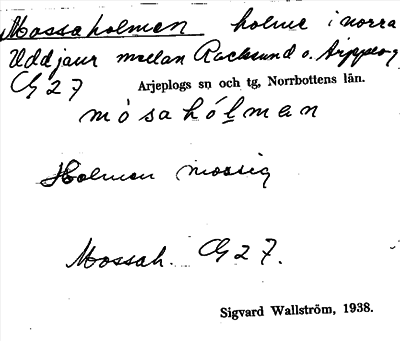 Mossaholmen holme i norra
Uddjaur mellan Racksund o. Arjeplog
G 27 Arjeplogs sn och tg, Norrbottens län.
mòsahólman
Holmen mossig
Mossah. G 27.
Sigvard Wallström, 1938.